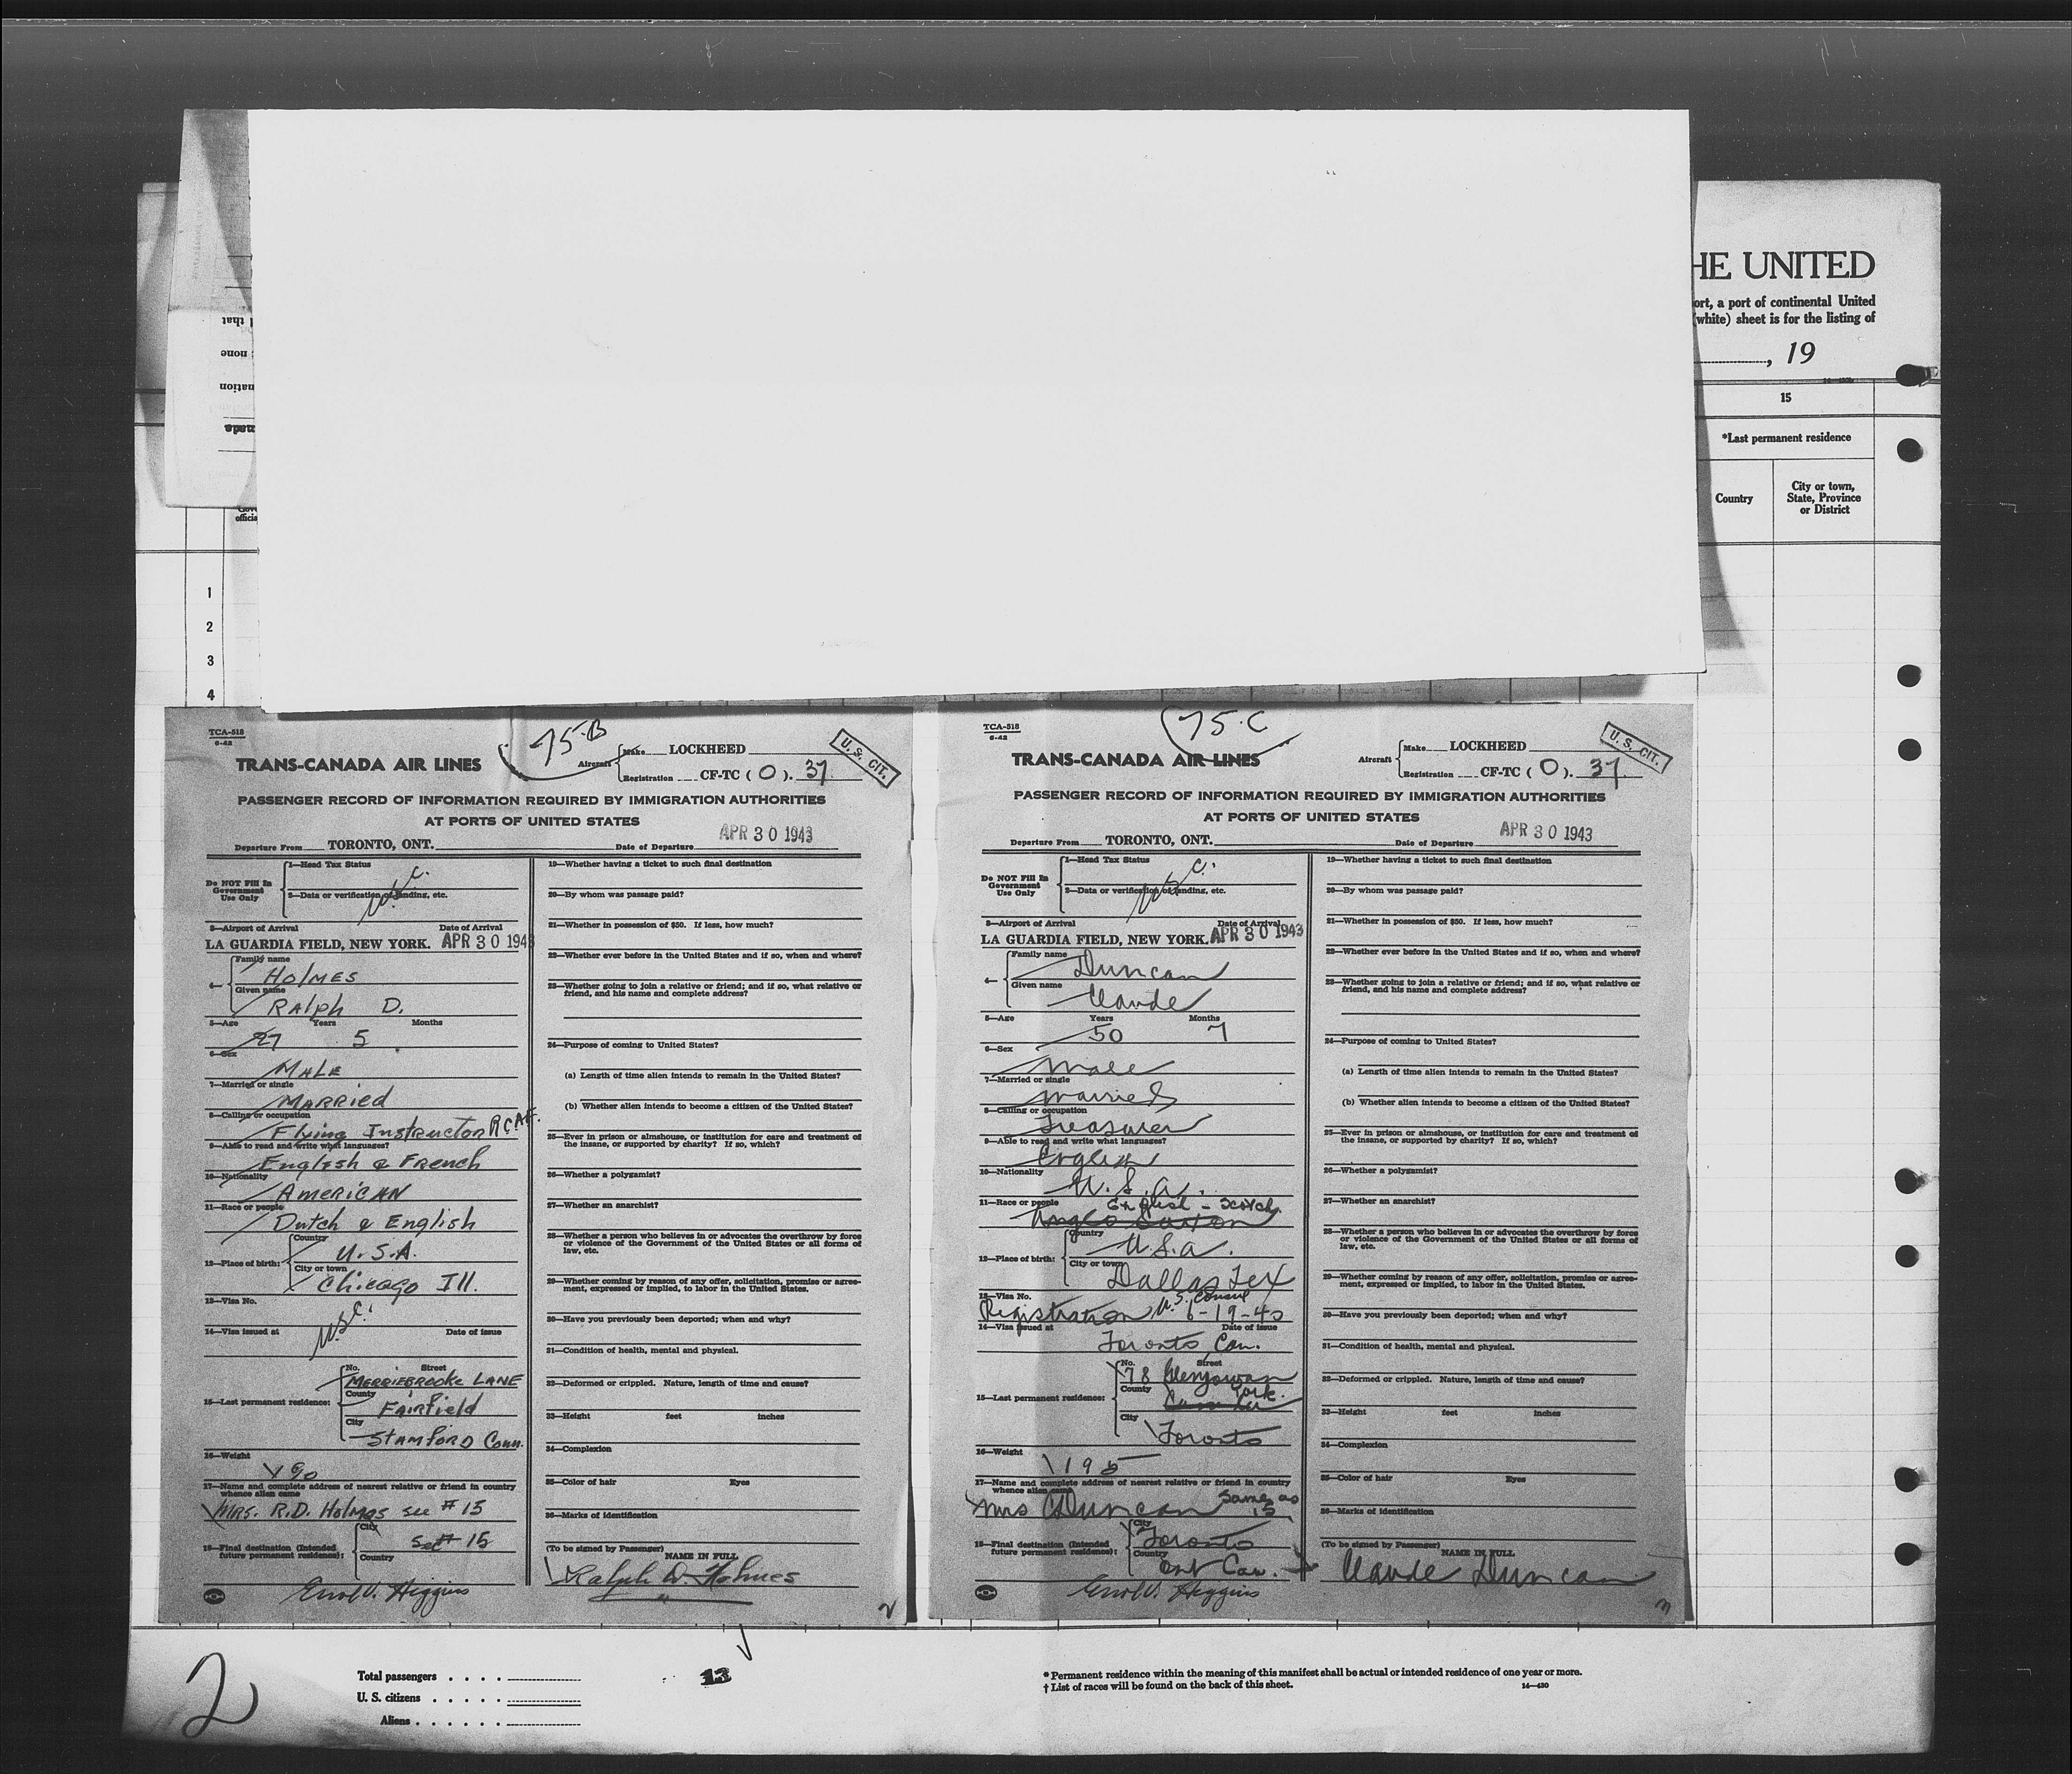 HE UNITED
ort, a port of continental United
(white) sheet is for the listing of
, 19
15
*Last permanent residence
Country
City or town,
State, Province
or District
that
none
nation
1
2
3
4
TCA-518
6-42
75-B
U. S. CIT.
TRANS-CANADA AIR LINES
Aircraft
Make LOCKHEED
Registration CF-TC ( O ). 37
PASSENGER RECORD OF INFORMATION REQUIRED BY IMMIGRATION AUTHORITIES
AT PORTS OF UNITED STATES
Departure From TORONTO, ONT. Date of Departure APR 30 1943
Do NOT Fill In
Government
Use Only
1—Head Tax Status
2—Data or verification of landing, etc.
U.S.C.
3—Airport of Arrival Date of Arrival
LA GUARDIA FIELD, NEW YORK. APR 30 1943
4—
Family name
HOLMES
Given name
RALPH D.
5—Age Years Months
27 5
6—Sex
MALE
7—Married or single
MARRIED
8—Calling or occupation
Flying Instructor RCAF.
9—Able to read and write what languages?
English & French
10—Nationality
AMERICAN
11—Race or people
Dutch & English
12—Place of birth:
Country
U.S.A.
City or town
Chicago Ill.
13—Visa No.
U.S.C.
14—Visa issued at Date of issue
15—Last permanent residence:
No. Street
MERRIEBROOKE LANE
County
FAIRfield
City
STAMFORD Conn.
16—Weight
190
17—Name and complete address of nearest relative or friend in country
whence alien came
MRS. R.D. Holmes see # 15
18—Final destination (Intended
future permanent residence):
City
See # 15
Country
Errol V. Higgins
19—Whether having a ticket to such final destination
20—By whom was passage paid?
21—Whether in possession of $50. If less, how much?
22—Whether ever before in the United States and if so, when and where?
23—Whether going to join a relative or friend; and if so, what relative or
friend, and his name and complete address?
24—Purpose of coming to United States?
(a) Length of time alien intends to remain in the United States?
(b) Whether alien intends to become a citizen of the United States?
25—Ever in prison or almshouse, or institution for care and treatment of
the insane, or supported by charity? If so, which?
26—Whether a polygamist?
27—Whether an anarchist?
28—Whether a person who believes in or advocates the overthrow by force
or violence of the Government of the United States or all forms of
law, etc.
29—Whether coming by reason of any offer, solicitation, promise or agree-
ment, expressed or implied, to labor in the United States.
30—Have you previously been deported; when and why?
31—Condition of health, mental and physical.
32—Deformed or crippled. Nature, length of time and cause?
33—Height feet inches
34—Complexion
35—Color of hair Eyes
36—Marks of identification
(To be signed by Passenger)
NAME IN FULL
Ralph D. Holmes
2
TCA-518
6-42
75-C
U. S. CIT.
TRANS-CANADA AIR LINES
Aircraft
Make LOCKHEED
Registration CF-TC ( O ). 37
PASSENGER RECORD OF INFORMATION REQUIRED BY IMMIGRATION AUTHORITIES
AT PORTS OF UNITED STATES
Departure From TORONTO, ONT. Date of Departure APR 30 1943
Do NOT Fill In
Government
Use Only
1—Head Tax Status
2—Data or verification of landing, etc.
U.S.C.
3—Airport of Arrival Date of Arrival
LA GUARDIA FIELD, NEW YORK. APR 30 1943
4—
Family name
Duncan
Given name
Claude
5—Age Years Months
50 7
6—Sex
Male
7—Married or single
Married
8—Calling or occupation
Treasurer
9—Able to read and write what languages?
English
10—Nationality
U.S.A.
11—Race or people English - Scotch
Anglo Saxon
12—Place of birth:
Country
U.S.A.
City or town
Dallas Tex
13—Visa No. U.S. Consul
Registration 6-19-40
14—Visa issued at Date of issue
Toronto, Can.
15—Last permanent residence:
No. Street
78 Glengowan
County York.
City
Toronto
16—Weight
195
17—Name and complete address of nearest relative or friend in country
whence alien came
Mrs C Duncan Same as 15
18—Final destination (Intended
future permanent residence):
City
Toronto
Country
Ont Can.
Errol V. Higgins
19—Whether having a ticket to such final destination
20—By whom was passage paid?
21—Whether in possession of $50. If less, how much?
22—Whether ever before in the United States and if so, when and where?
23—Whether going to join a relative or friend; and if so, what relative or
friend, and his name and complete address?
24—Purpose of coming to United States?
(a) Length of time alien intends to remain in the United States?
(b) Whether alien intends to become a citizen of the United States?
25—Ever in prison or almshouse, or institution for care and treatment of
the insane, or supported by charity? If so, which?
26—Whether a polygamist?
27—Whether an anarchist?
28—Whether a person who believes in or advocates the overthrow by force
or violence of the Government of the United States or all forms of
law, etc.
29—Whether coming by reason of any offer, solicitation, promise or agree-
ment, expressed or implied, to labor in the United States.
30—Have you previously been deported; when and why?
31—Condition of health, mental and physical.
32—Deformed or crippled. Nature, length of time and cause?
33—Height feet inches
34—Complexion
35—Color of hair Eyes
36—Marks of identification
(To be signed by Passenger)
NAME IN FULL
Claude Duncan
3
2
Total passengers . . . .
U. S. citizens . . . . .
Aliens . . . . . .
13
* Permanent residence within the meaning of this manifest shall be actual or intended residence of one year or more.
† List of races will be found on the back of this sheet.
14—430